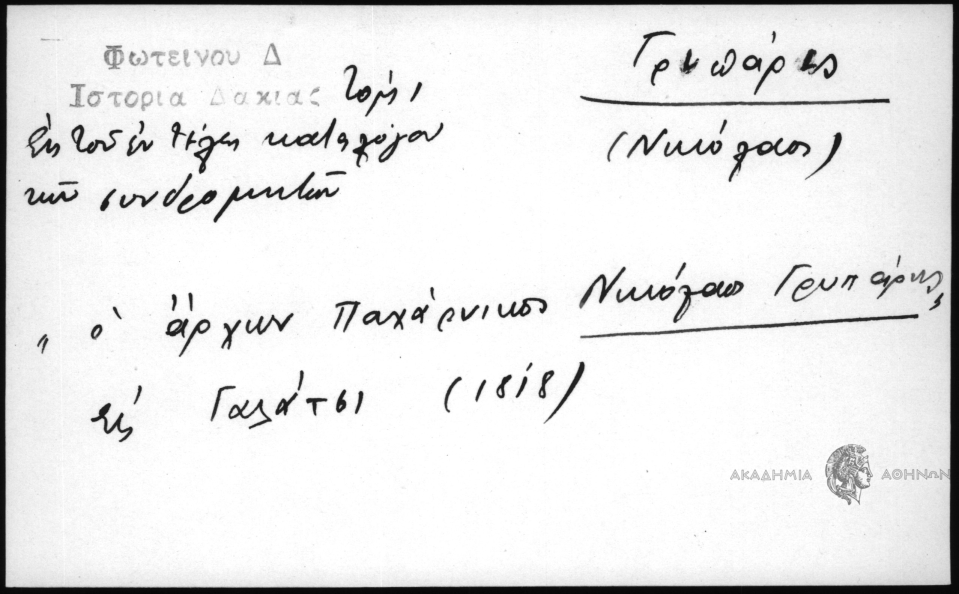 Φωτεινου Δ
Ιστορια Δακιας Τόμ. 1
Γρυπάρης
(Νικόλαος)
Εἰς τὸν ἐν τέλει κατάλογον
τῶν συνδρομητῶν
„ ὁ ἄρχων Παχάρνικος Νικόλαος Γρυπάρης„
εἰς Γαλάτσι (1818)
ΑΚΑΔΗΜΙΑ ΑΘΗΝΩΝ